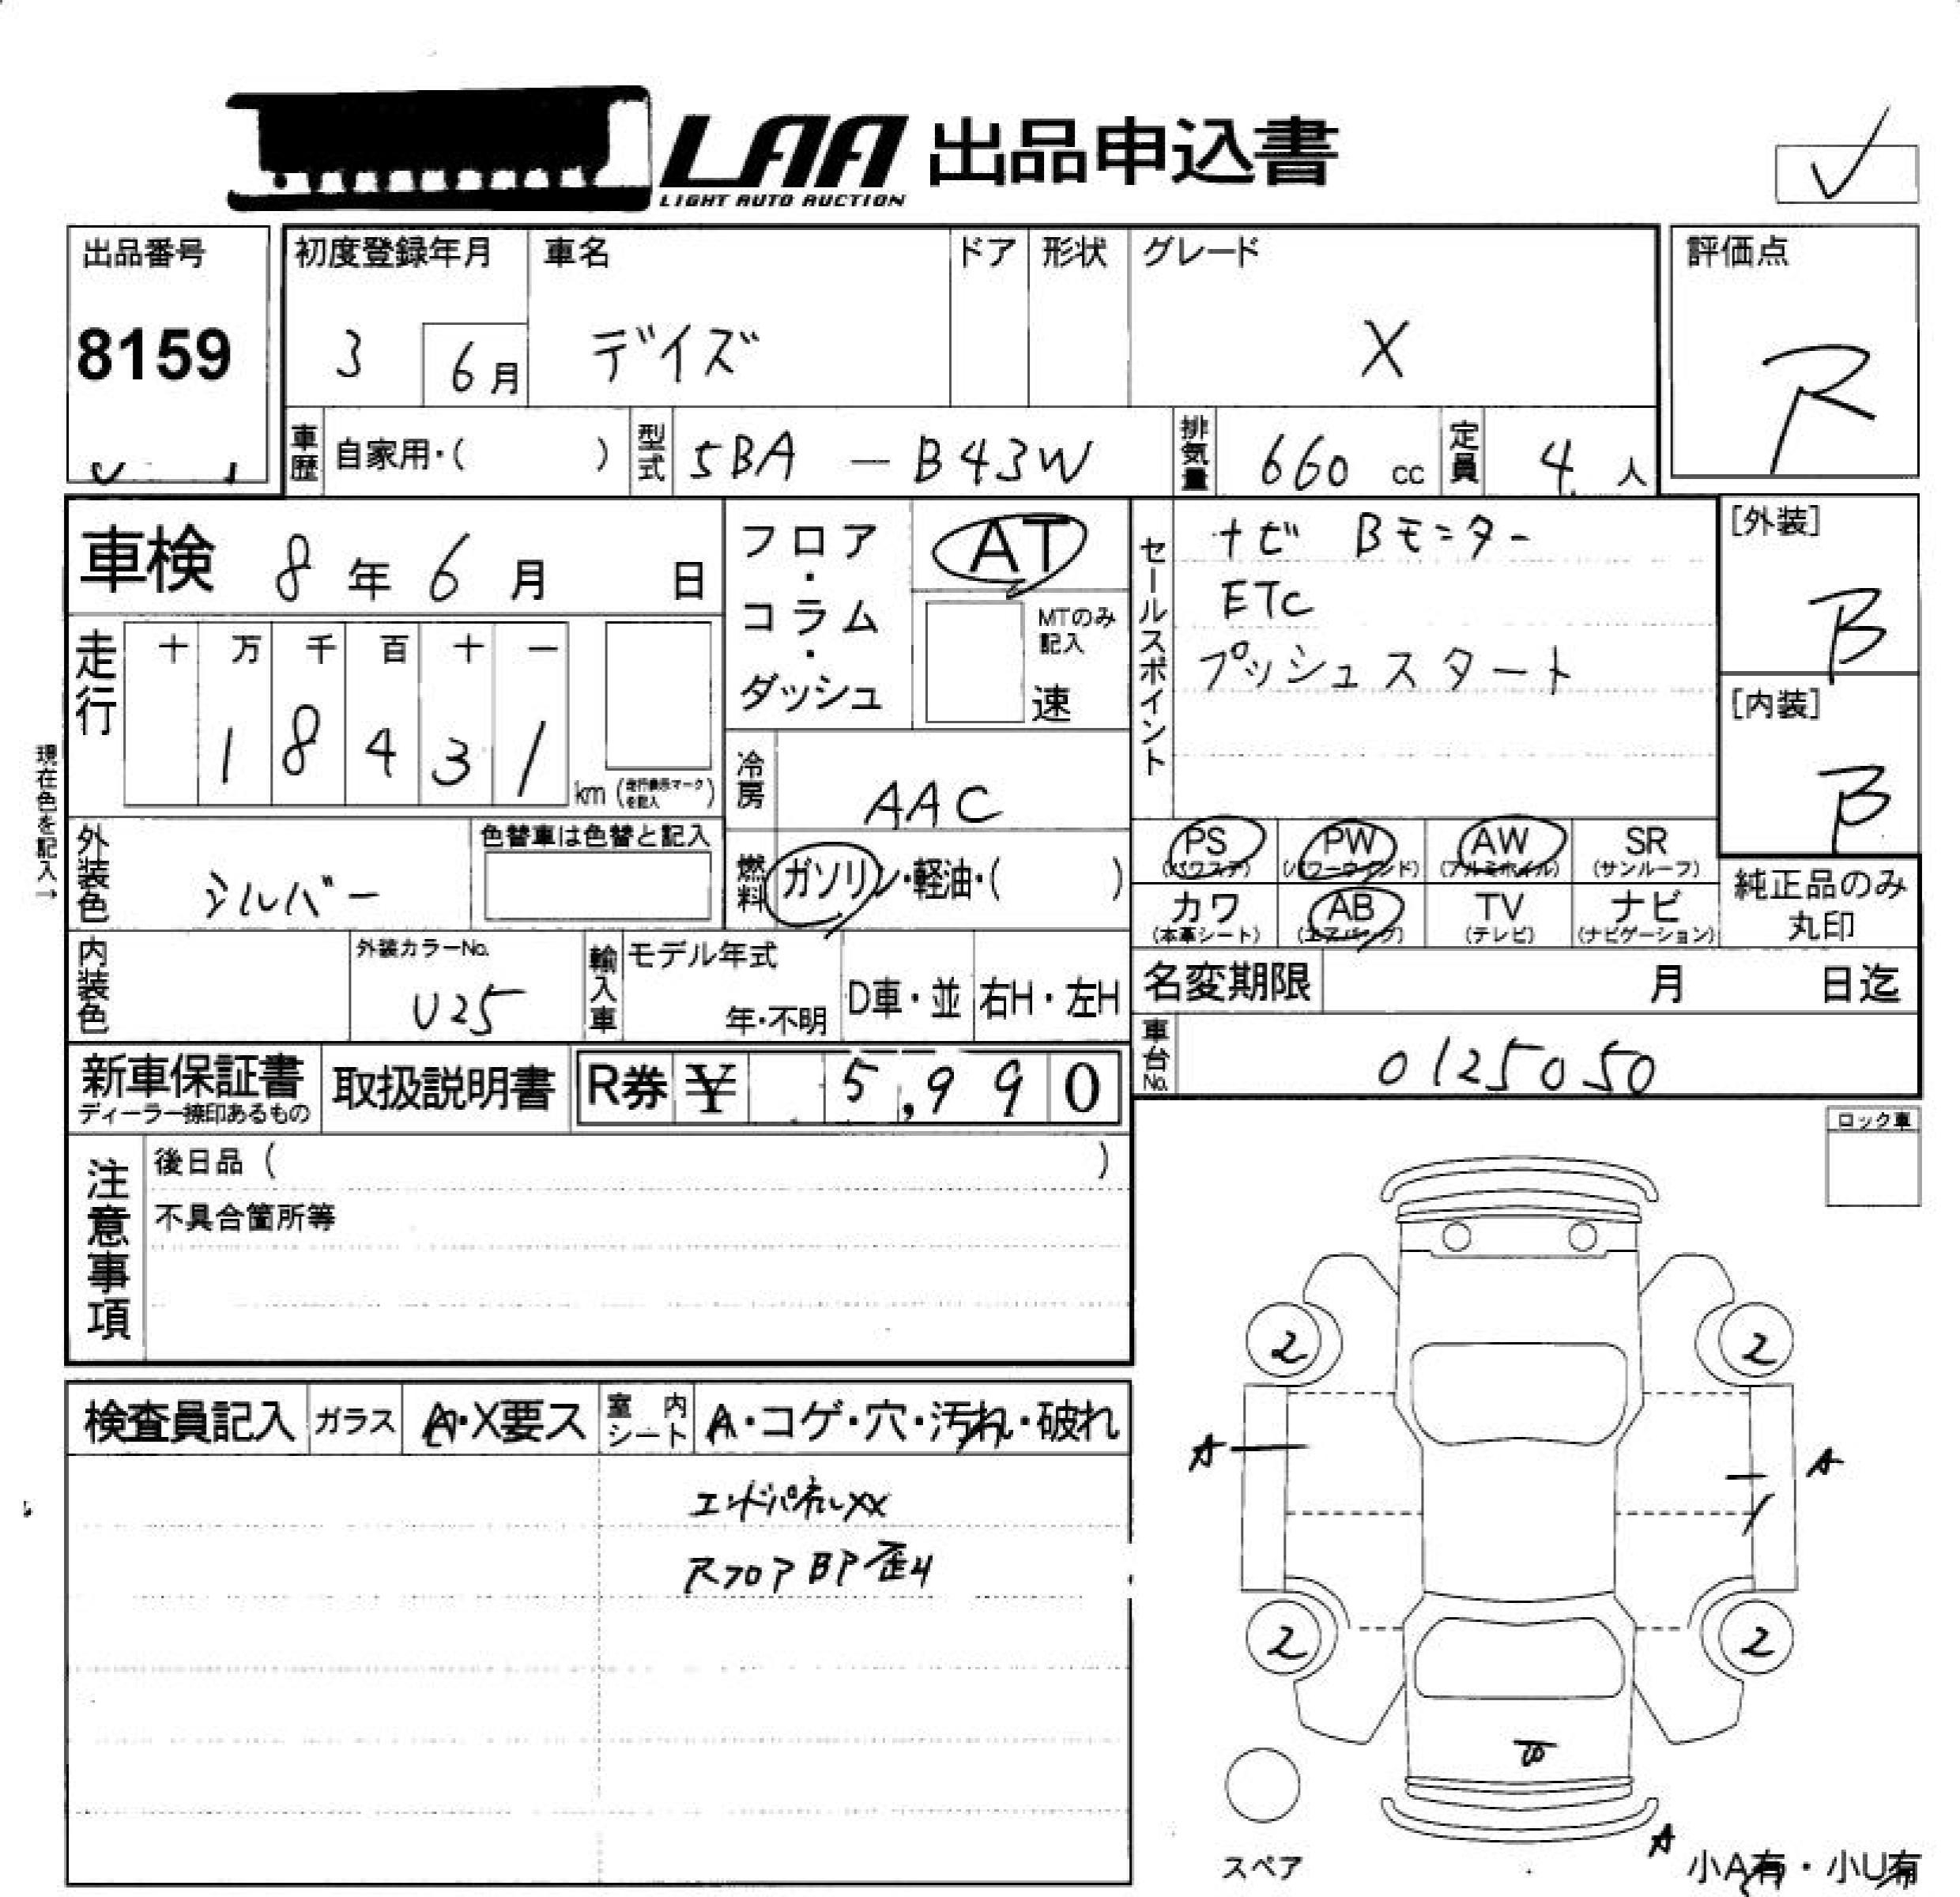 LAA 出品申込書
LIGHT AUTO AUCTION
出品番号
8159
初度登録年月 車名 ドア 形状 グレード
3 6月 デイズ X
評価点
R
車歴 自家用・( ) 型式 5BA - B43W 排気量 660 cc 定員 4 人
車検 8年 6月 日
走行 十 万 千 百 十 一
1 8 4 3 1 km (走行表示マークを記入)
現在色を記入→
フロア・コラム・ダッシュ
AT
MTのみ記入
速
冷房 AAC
燃料 ガソリン・軽油・( )
セールスポイント
ナビ Bモニター
ETC
プッシュスタート
[外装]
B
[内装]
B
PS (パワステ) PW (パワーウインド) AW (アルミホイル) SR (サンルーフ)
カワ (本革シート) AB (エアバッグ) TV (テレビ) ナビ (ナビゲーション)
純正品のみ
丸印
外装色 シルバー
色替車は色替と記入
内装色
外装カラーNo.
U25
輸入車 モデル年式
年・不明 D車・並 右H・左H
名変期限 月 日迄
車台No. 0125050
新車保証書
ディーラー捺印あるもの
取扱説明書
R券 ¥ 5,990
注意事項
後日品 ( )
不具合箇所等
ロック車
検査員記入 ガラス A・X要ス 室内シート A・コゲ・穴・汚れ・破れ
エンドパネルXX
RフロアBP歪み
2 2
A A
2 2
スペア
A
小A有・小U有